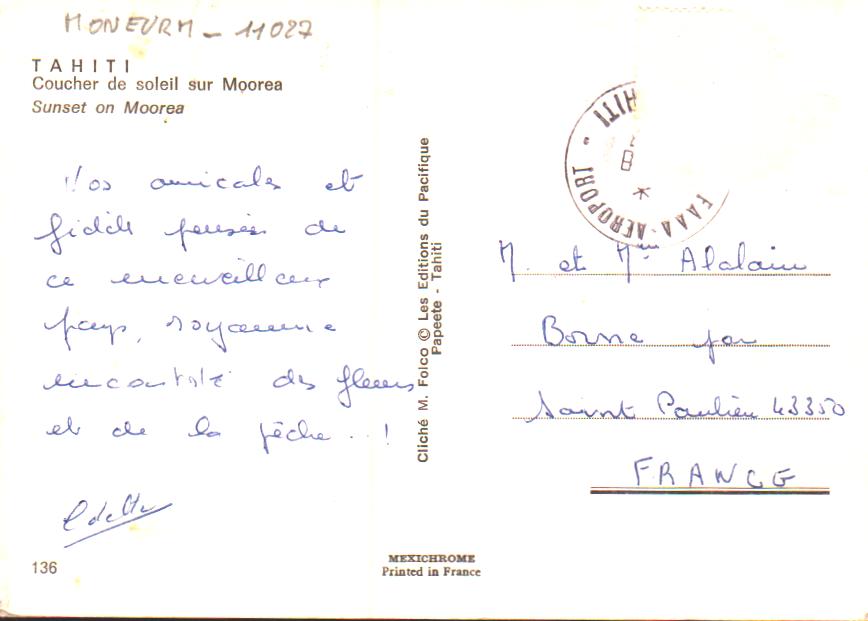 MONEURM - 11027
TAHITI
Coucher de soleil sur Moorea
Sunset on Moorea
Nos amicales et
fidèle pensées de
ce merveilleux
pays, royaume
incontesté des fleurs
et de la pêche...!
Odette
136
Cliché M. Folco © Les Editions du Pacifique
Papeete - Tahiti
MEXICHROME
Printed in France
FAAA-AEROPORT - HITI
8
M. et Mme Alalain
Borne par
Saint Paulien 43350
FRANCE